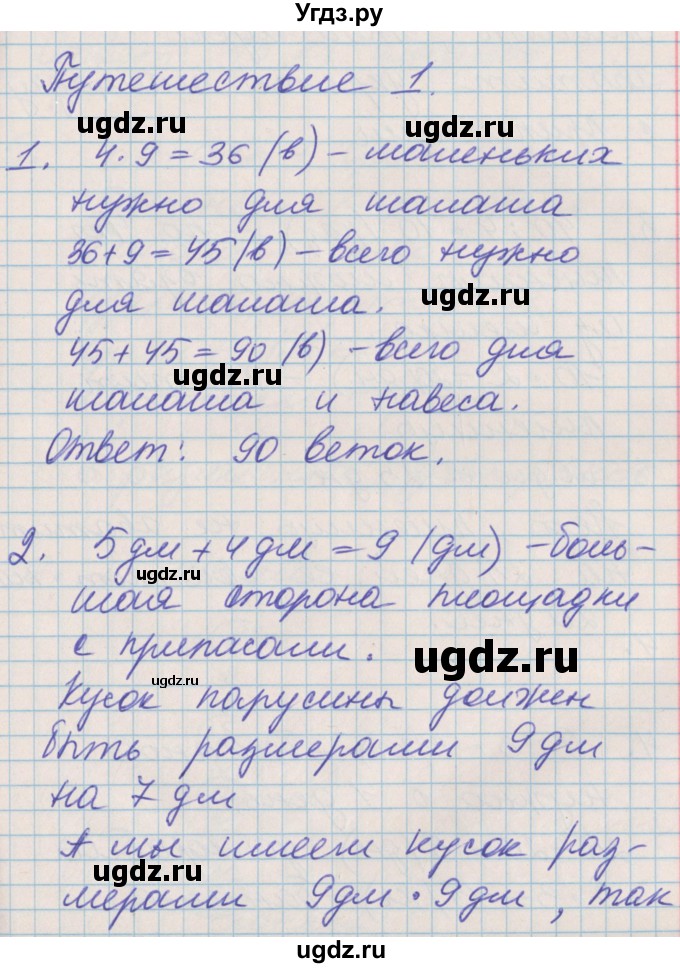 Угдз.ру
Путешествие 1.
ugdz.ru
ugdz.ru
1. 4·9=36 (в) – маленьких
нужно для шалаша
36+9=45 (в) – всего нужно
для шалаша.
ugdz.ru
45+45=90 (в) – всего для
ugdz.ru
шалаша и навеса.
Ответ: 90 веток.
2. 5дм+4дм=9 (дм) – боль-
ugdz.ru
шая сторона площадки
с припасами.
ugdz.ru
ugdz.ru
Кусок парусины должен
быть размерами 9дм
на 7дм
А мы имеем кусок раз-
ugdz.ru
мерами 9дм · 9дм, так
ugdz.ru